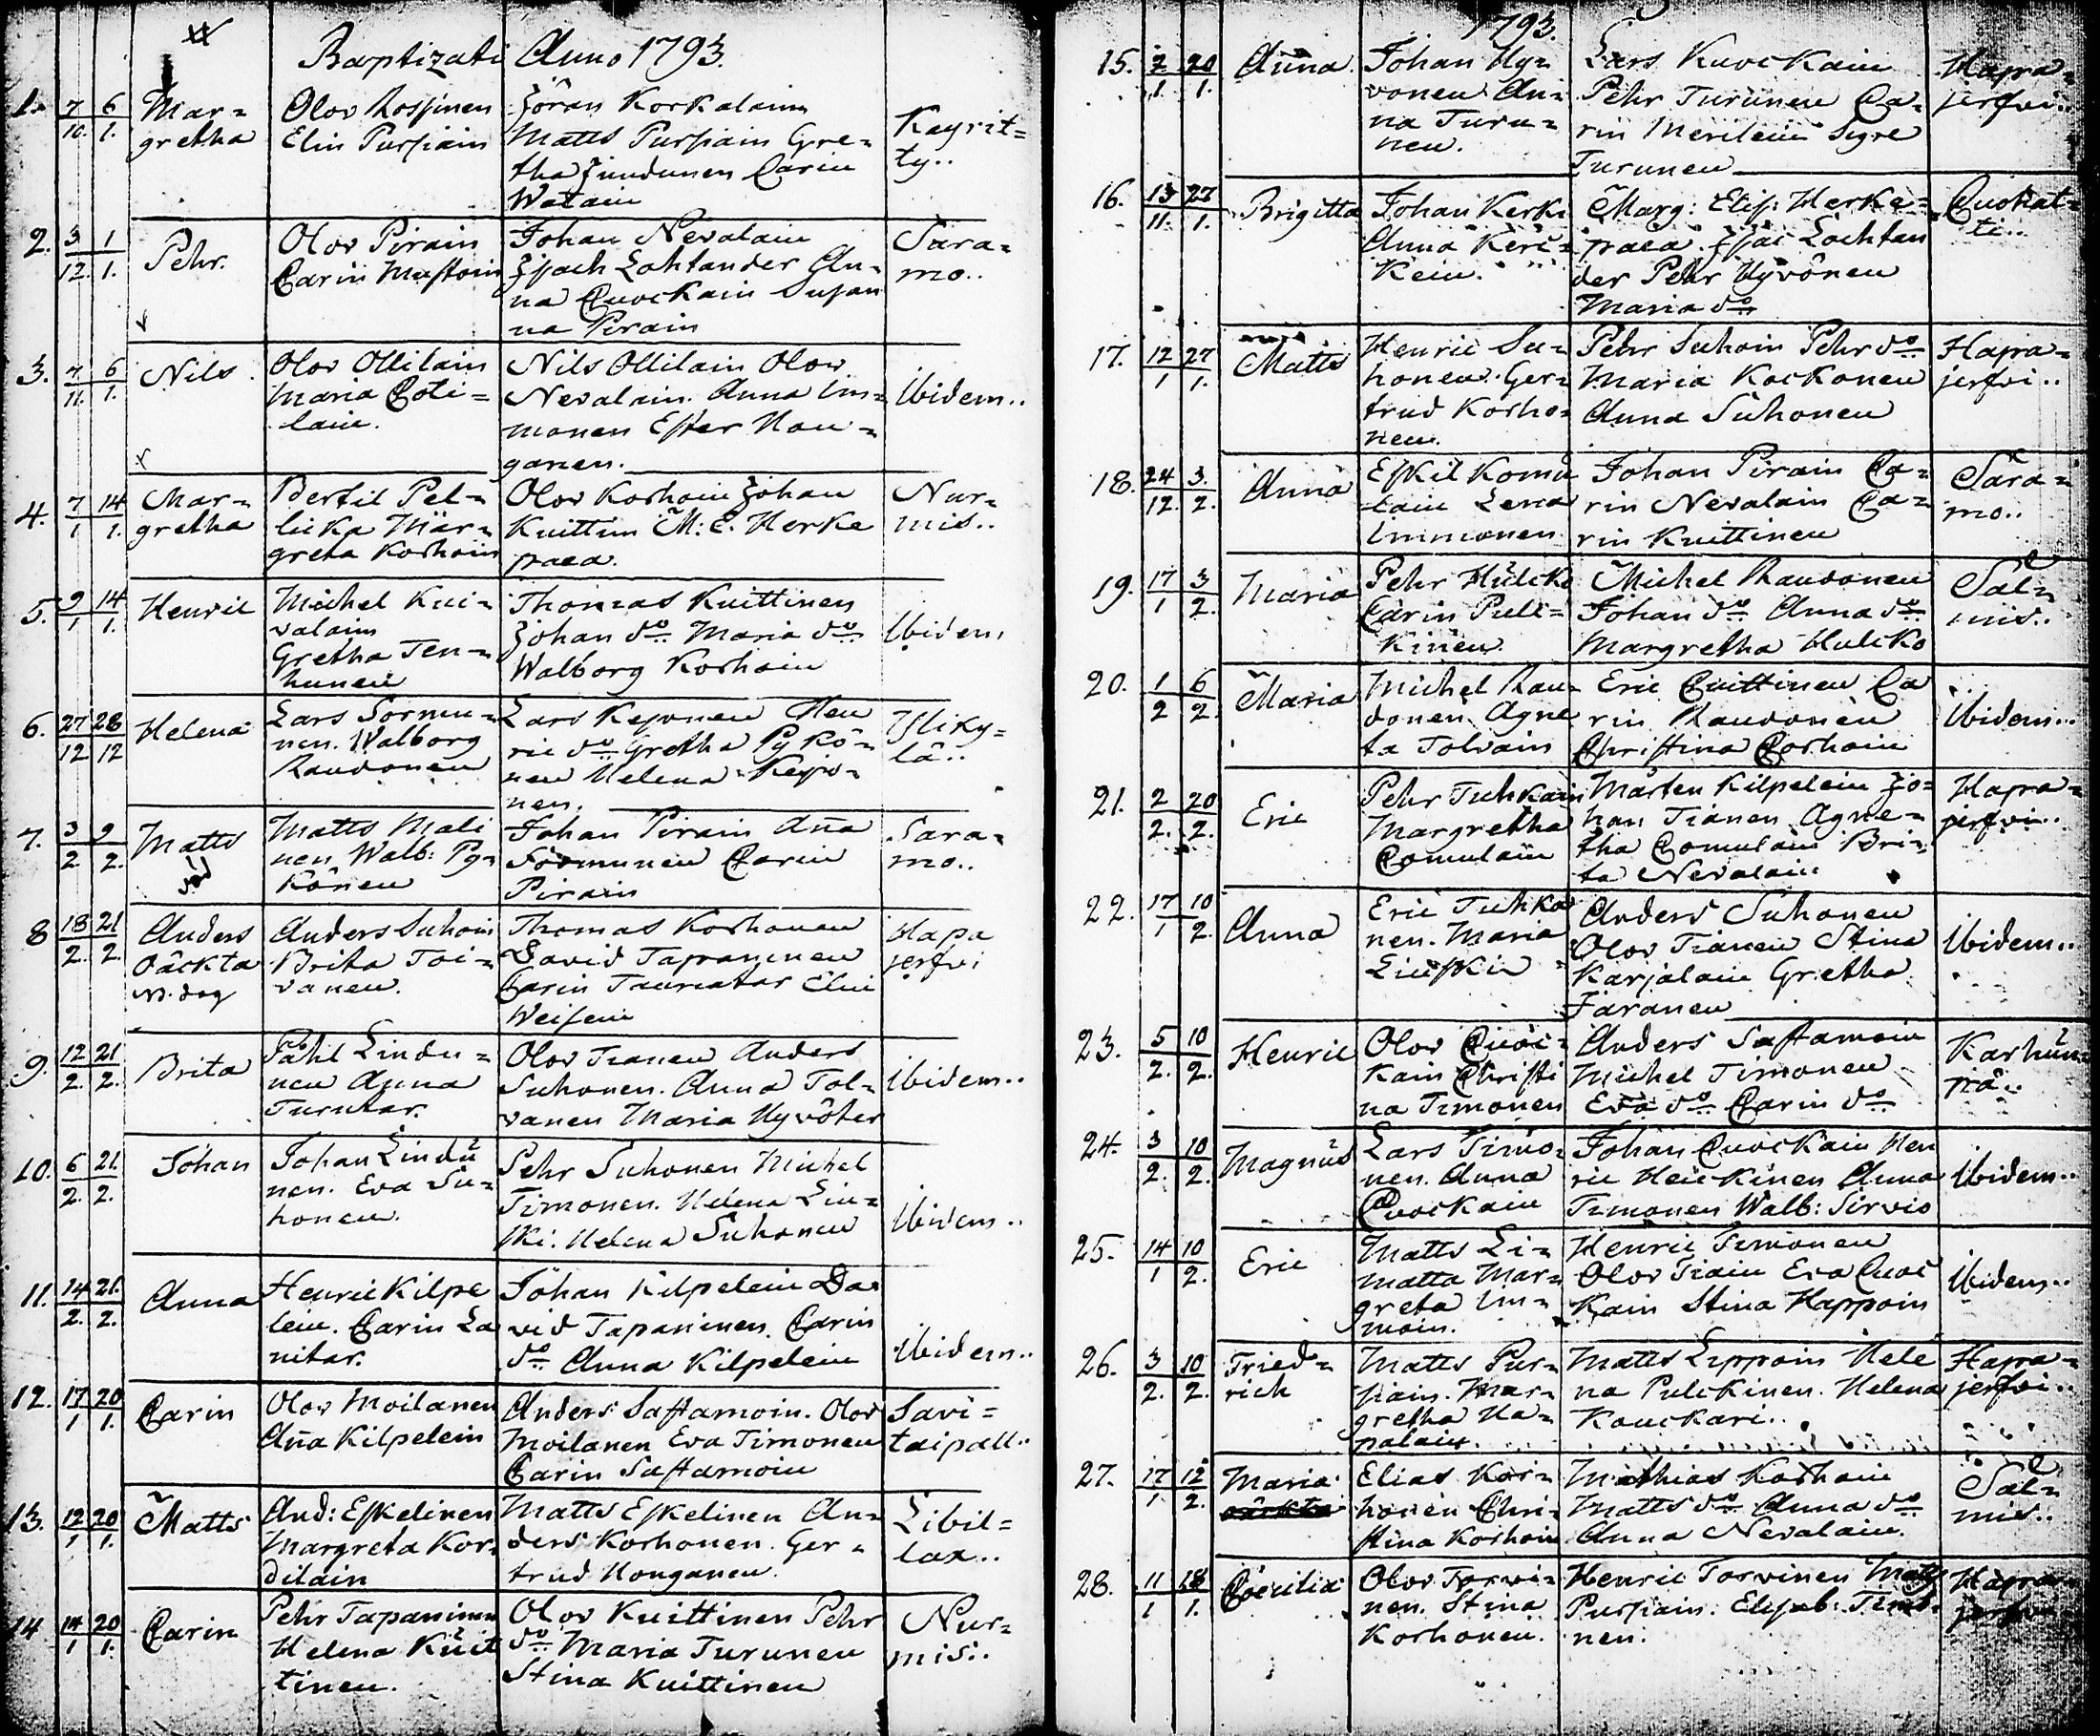 Baptizati Anno 1793.
1. 7/10. 6/1. Mar=gretha
Olov Rossinen
Elin Pursiain
Jöran Korkalain
Matts Pursiain Gre=
tha Jundunen Carin
Watain
Kayrit=
ty..
2. 3/12. 1/1. Pehr.
Olov Pirain
Carin Mustoin
Johan Nevalain
Isach Lohlander An=
na Quockain Susan
na Pirain
Sara=
mo..
3. 4/11. 6/1. Nils
Olov Ollilain
Maria Coti=
lain.
Nils Ollilain Olov
Nevalain. Anna Im=
monen Ester Hou=
ganen.
Ibidem..
4. 7/1 14/1. Mar=
gretha
Bertil Pel=
licka Mar=
greta Korhoin
Olov Korhoin Johan
Kuittin M: E. Herke
paea.
Nur=
mis..
5. 9/1 14/1. Henric
Michel Kui=
valain
Gretha Ten=
hunen
Thomas Kuittinen
Johan do Maria do
Walborg Korhoin
Ibidem
6. 27/12 28/12 Helena
Lars Sormu=
nen. Walborg
Raudonen
Lars Keponen Hen
ric do Gretha Pykö=
nen Helena Kepo=
nen.
Yliky=
lä..
7. 3/2. 9/2. Matts
Matts Mali
nen Walb: Py=
könen
Johan Pirain Ana
Sormunen Carin
Pirain
Sara=
mo..
8 18/2. 21/2. Anders
oäckta
Anders Suhoin
Brita Toi=
vanen.
Thomas Korhonen
David Tapaninen
Carin Elin
Weisein
Hapa
jerfvi
9. 12/2. 21/2. Brita
Påhl Lindu=
nen Anna
Turutar.
Olov Tianen Anders
Suhonen. Anna Tol=
vanen Maria Hyvöter
Ibidem..
10. 6/2. 21/2. Johan
Johan Lindu
nen. Eva Su=
honen.
Pehr Suhonen Michel
Timonen. Helena Lius=
ki. Helena Suhonen
Ibidem..
11. 14/2. 21/2. Anna
Henric Kilpe
lein. Carin La
nitar.
Johan Kilpelein Da
vid Tapaninen. Carin
do Anna Kilpelein
Ibidem..
12. 17/1 20/1. Carin
Olov Moilanen
Ana Kilpelein
Anders Sastamoin. Olov
Moilanen Eva Timonen
Carin Sastamoin
Savi=
taipall..
13. 12/1 20/1. Matts
And: Eskelinen
Margreta Kor=
dilain
Matts Eskelinen An=
ders Korhonen. Ger=
trud Houganen.
Libil=
lax..
14 14/1 20/1. Carin
Pehr Tapaninen
Helena Kuit
tinen.
Olov Kuittinen Pehr
do Maria Turunen
Stina Kuittinen
Nur=
mis..
1793.
15. 2/1. 20/1. Anna.
Johan Hy=
vonen An=
na Turu=
nen.
Lars Kuockain
Pehr Turunen Ca=
rin Merilein Sigre
Turunen
Hapa=
jerfvi..
16. 13/11. 27/1. Brigitta
Johan Kerki
Anna Keri=
kein.
Marg: Elis: Herke=
paea. Isac Lochlan
der Pehr Hyvönen
Maria do
Quokat=
ti..
17. 12/1 27/1. Matts
Henric Su=
honen. Ger=
trud Korho=
nen.
Pehr Suhoin Pehr do
Maria Kockonen
Anna Suhonen
Hapa=
jerfvi..
18. 24/12. 3./2. Anna
Eskil Komu
lain Lena
Immonen
Johan Pirain Ca=
rin Nevalain Ca=
rin Kuittinen
Sara=
mo..
19. 17/1 3/2. Maria
Pehr Hulcko
Carin Pulc=
kinen
Michel Raudonen
Johan do Anna do
Margretha Hulcko
Sal=
mis..
20. 1/2 6/2. Maria
Michel Rau=
donen Agne
ta Tolvain
Eric Quittinen Ca
rin Raudonen
Christina Corhoin
Ibidem..
21. 2/2. 20/2. Eric
Pehr Tuhkain
Margretha
Comulain
Mårten Kilpelein Jo=
han Tianen Agne=
tha Comulain Bri=
ta Nevalain
Hapa=
jerfvi..
22. 17/1 10/2. Anna
Eric Tuhka
nen. Maria
Liuski
Anders Suhonen
Olov Tianen Stina
Karjalain Gretha
Jaranen
Ibidem..
23. 5/2. 10/2. Henric
Olov Quoc=
kain Christi
na Timonen
Anders Sastamoin
Michel Timonen
Eva do Carin do
Karhun=
pä..
24. 3/2. 10/2. Magnus
Lars Timo=
nen. Anna
Quockain
Johan Quockain Hen
ric Heickinen Anna
Timonen Walb: Sirvio
Ibidem..
25. 14/1 10/2. Eric
Matts Li=
matta Mar=
greta Im=
moin.
Henric Timonen
Olov Tiain Eva Quoc
kain Stina Happoin
Ibidem..
26. 3/2. 10/2. Fried=
rich
Matts Pur=
siain. Mar=
gretha Ha=
palain.
Matts Lippoin Hele
na Pulckinen. Helena
Kauckari..
Hapa=
jerfvi..
27. 17/1 12/2. Maria
Elias Kor=
honen Chri=
stina Korhoin
Mathias Korhoin
Matts do Anna do
Anna Nevalain.
Sal=
mis..
28. 11/1 18/1. Coecilia
Olov Torvi=
nen. Stina
Korhonen.
Henric Torvinen Matts
Pursiain. Elisab: Timo=
nen.
Hapa=